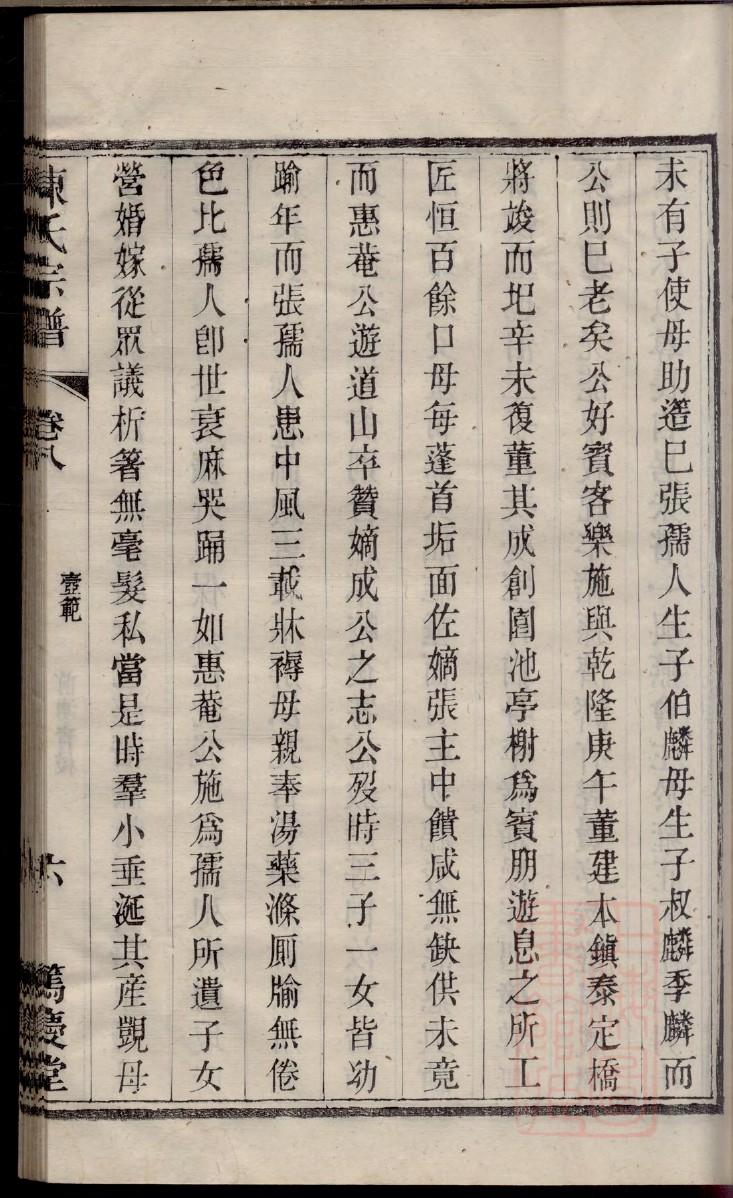 未有子使母助簉已張孺人生子伯麟母生子叔麟季麟而
公則已老矣公好賓客樂施與乾隆庚午董建本鎭泰定橋
將竣而圯辛未復董其成創園池亭榭爲賓朋遊息之所工
匠恒百餘口母每蓬首垢面佐嫡張主中饋咸無缺供未竟
而惠菴公遊道山卒贊嫡成公之志公歿時三子一女皆幼
踰年而張孺人患中風三載牀褥母親奉湯藥滌厠牏無倦
色比孺人卽世衰麻哭踊一如惠菴公施爲孺人所遺子女
營婚嫁從眾議析箸無毫髮私當是時羣小垂涎其產覬母
陳氏宗譜 卷八 壼範 六 篤慶堂